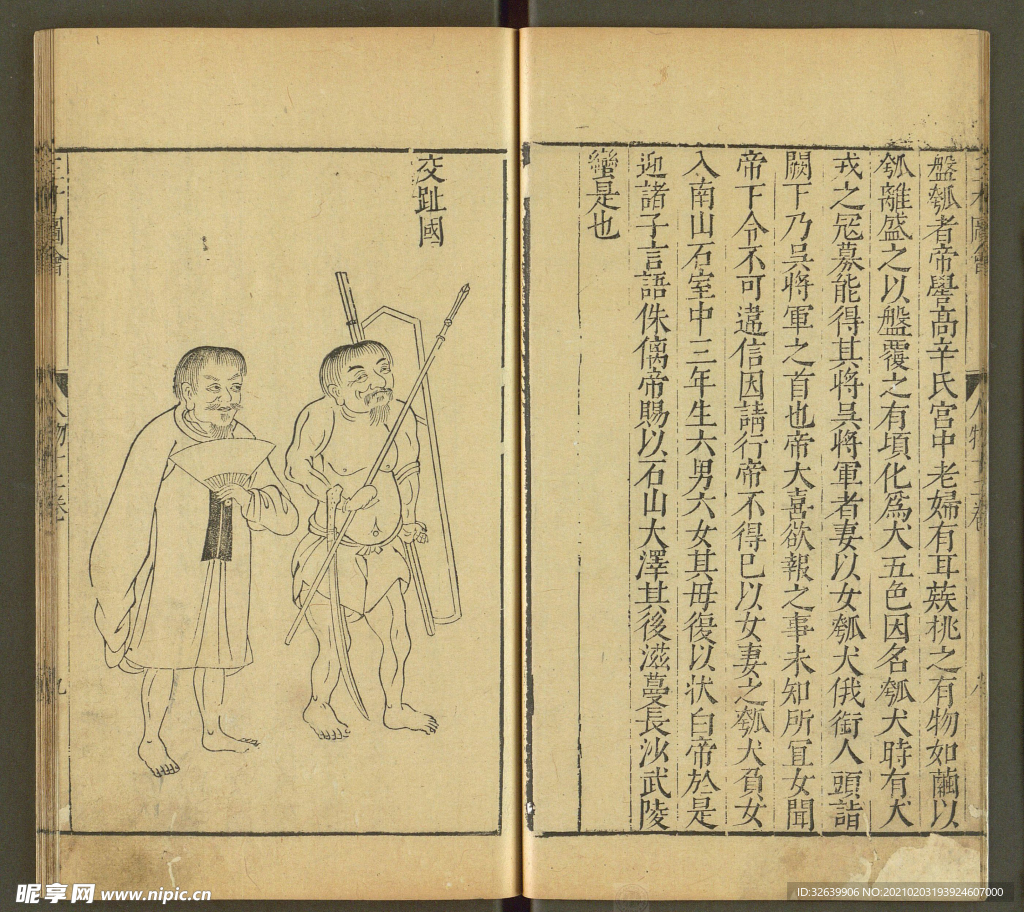 三才圖會
人物十二卷
盤瓠者帝嚳高辛氏宮中老婦有耳蔟桃之有物如繭以
瓠離盛之以盤覆之有頃化爲犬五色因名瓠犬時有犬
戎之冦募能得其將吳將軍者妻以女瓠犬俄銜人頭詣
闕下乃吳將軍之首也帝大喜欲報之事未知所冝女聞
帝下令不可違信因請行帝不得已以女妻之瓠犬負女
入南山石室中三年生六男六女其母復以状白帝於是
迎諸子言語侏㒧帝賜以石山大澤其後滋蔓長沙武陵
蠻是也
交趾國
三才圖會
人物十二卷
九
昵享网 www.nipic.cn
ID:32639906 NO:20210203193924607000